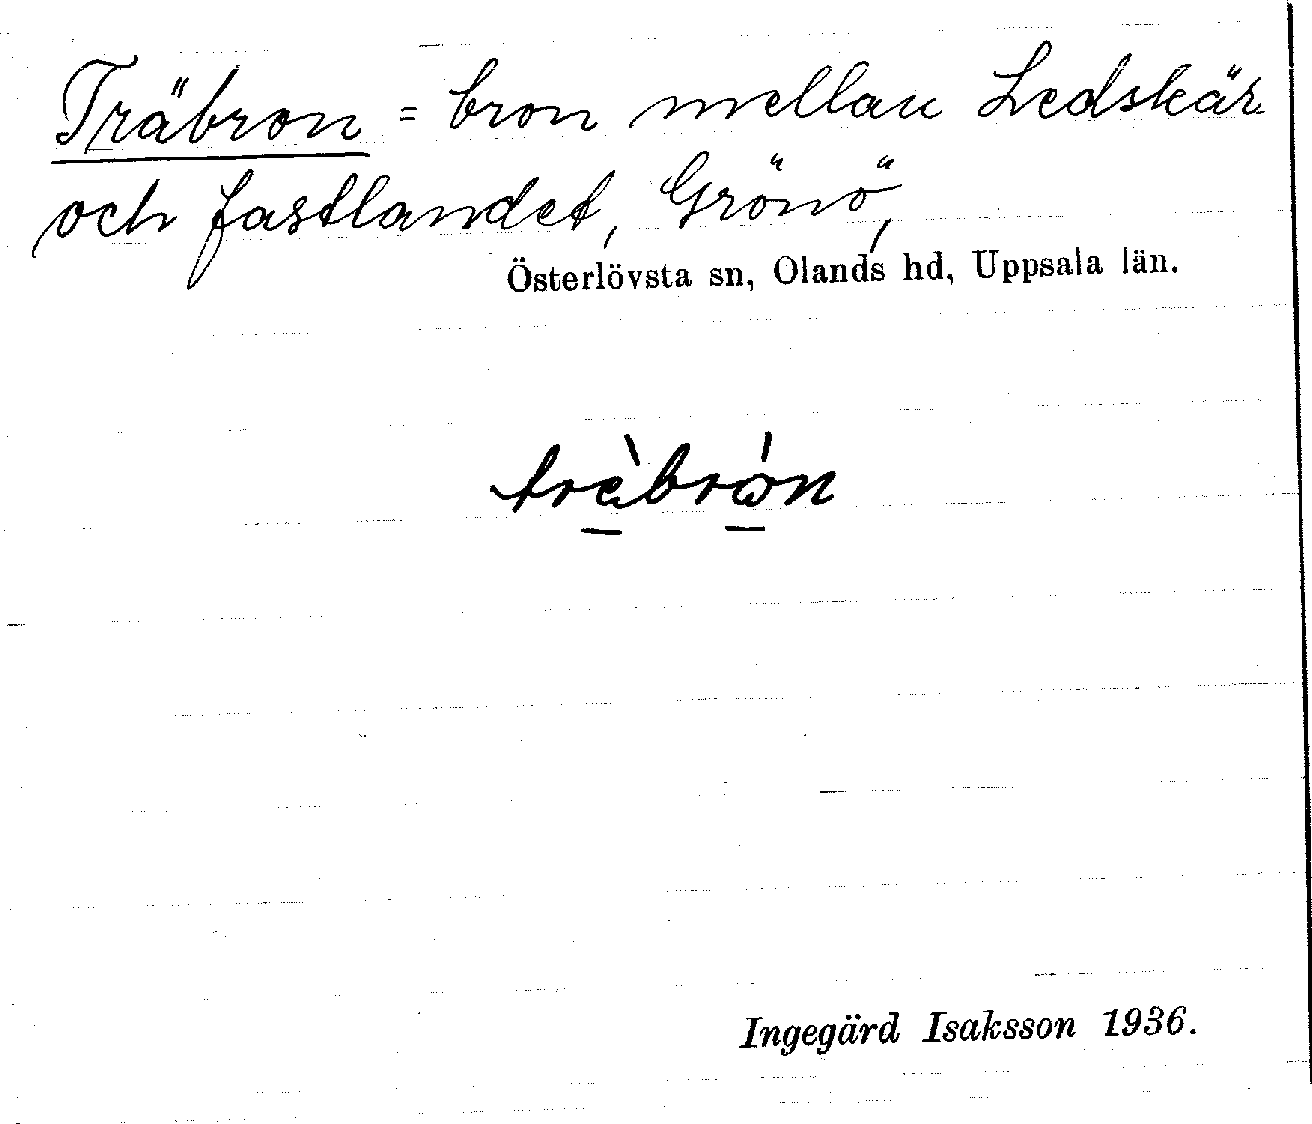 Träbron = bron mellan Ledskär
och fastlandet, Grönö,
Österlövsta sn, Olands hd, Uppsala län.
trè̠brò̠n
Ingegärd Isaksson 1936.